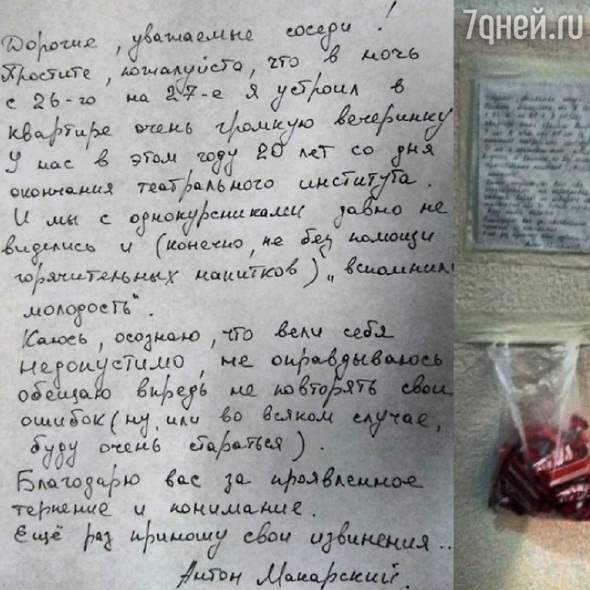 7дней.ru
Дорогие, уважаемые соседи!
Простите, пожалуйста, что в ночь
с 26-го на 27-е я устроил в
квартире очень громкую вечеринку
У нас в этом году 20 лет со дня
окончания театрального института.
И мы с однокурсниками давно не
виделись и (конечно, не без помощи
горячительных напитков) „вспомнили
молодость".
Каюсь, осознаю, что вели себя
недопустимо, не оправдываюсь
обещаю впредь не повторять своих
ошибок (ну, или во всяком случае,
буду очень стараться).
Благодарю вас за проявленное
терпение и понимание.
Ещё раз приношу свои извинения..
Антон Макарский.